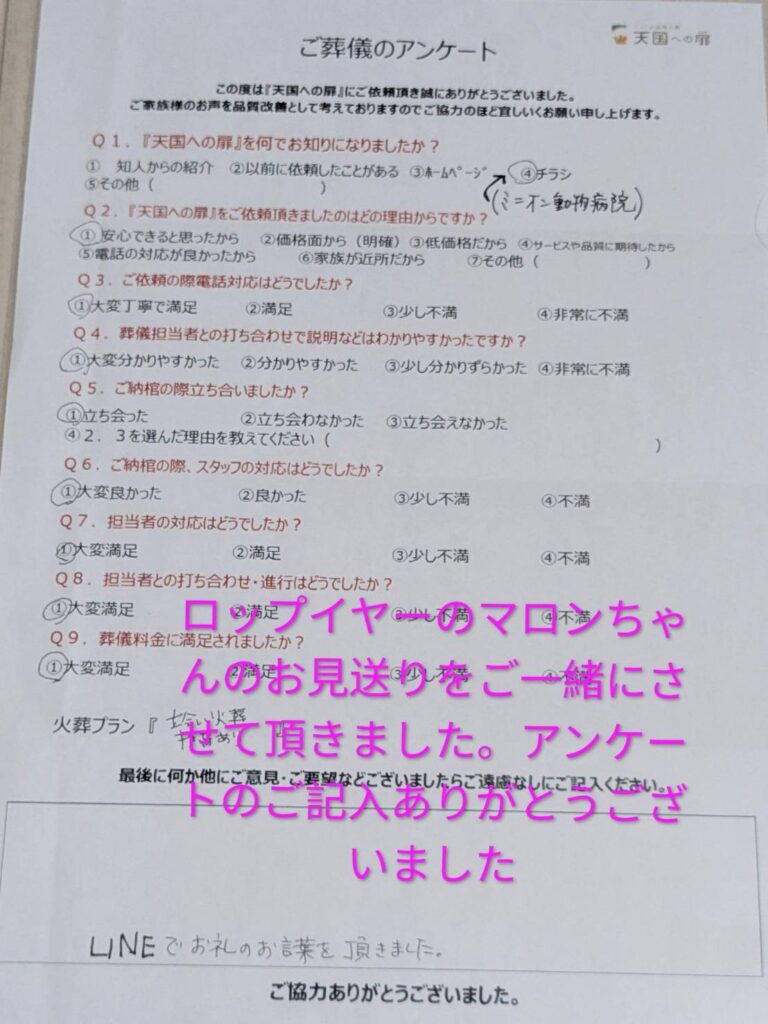 天国への扉
ご葬儀のアンケート
この度は『天国への扉』にご依頼頂き誠にありがとうございました。
ご家族様のお声を品質改善として考えておりますのでご協力のほど宜しくお願い申し上げます。
Q1．『天国への扉』を何でお知りになりましたか？
① 知人からの紹介 ②以前に依頼したことがある ③ﾎｰﾑﾍﾟｰｼﾞ ④チラシ
⑤その他（ ）
(ミニオン動物病院)
Q2．『天国への扉』をご依頼頂きましたのはどの理由からですか？
①安心できると思ったから ②価格面から（明確） ③低価格だから ④サービスや品質に期待したから
⑤電話の対応が良かったから ⑥家族が近所だから ⑦その他（ ）
Q3．ご依頼の際電話対応はどうでしたか？
①大変丁寧で満足 ②満足 ③少し不満 ④非常に不満
Q4．葬儀担当者との打ち合わせで説明などはわかりやすかったですか？
①大変分かりやすかった ②分かりやすかった ③少し分かりずらかった ④非常に不満
Q5．ご納棺の際立ち合いましたか？
①立ち会った ②立ち会わなかった ③立ち会えなかった
④２．３を選んだ理由を教えてください（ ）
Q6．ご納棺の際、スタッフの対応はどうでしたか？
①大変良かった ②良かった ③少し不満 ④不満
Q7．担当者の対応はどうでしたか？
①大変満足 ②満足 ③少し不満 ④不満
Q8．担当者との打ち合わせ・進行はどうでしたか？
①大変満足 ②満足 ③少し不満 ④不満
Q9．葬儀料金に満足されましたか？
①大変満足 ②満足 ③少し不満 ④不満
ロップイヤーのマロンちゃ
んのお見送りをご一緒にさ
せて頂きました。アンケー
トのご記入ありがとうござ
いました
火葬プラン『 立会い火葬 』
最後に何か他にご意見・ご要望などございましたらご遠慮なしにご記入ください。
LINEでお礼のお言葉を頂きました。
ご協力ありがとうございました。